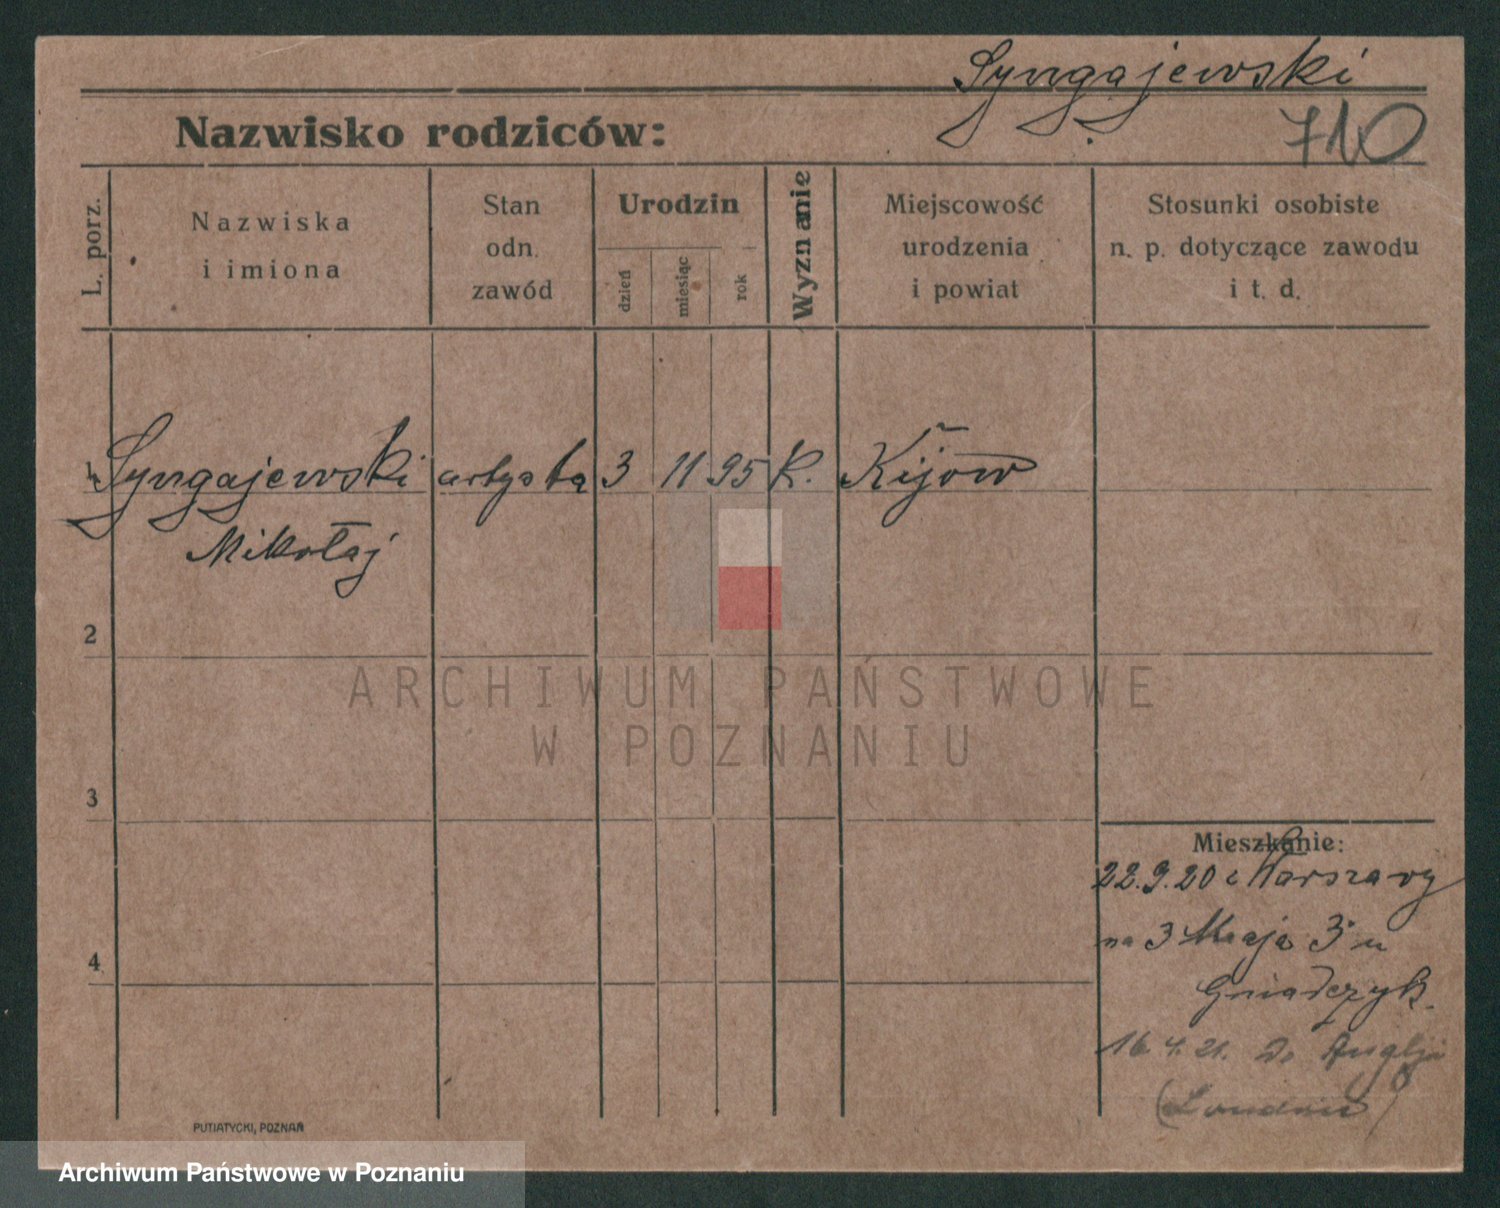 Syngajewski
Nazwisko rodziców:
710
L. porz.
Nazwiska
i imiona
Stan
odn.
zawód
Urodzin
dzień
miesiąc
rok
Wyznanie
Miejscowość
urodzenia
i powiat
Stosunki osobiste
n. p. dotyczące zawodu
i t. d.
1 Syngajewski artysta 3 11 95 k. Kijów
Mikołaj
2
3
4
ARCHIWUM PAŃSTWOWE
W POZNANIU
Mieszkanie:
22.9.20 z Warszawy
na 3 Maja 3 u
Gniadczyk
16 4. 21. Do Anglji
(Londyn)
PUTIATYCKI, POZNAŃ
Archiwum Państwowe w Poznaniu